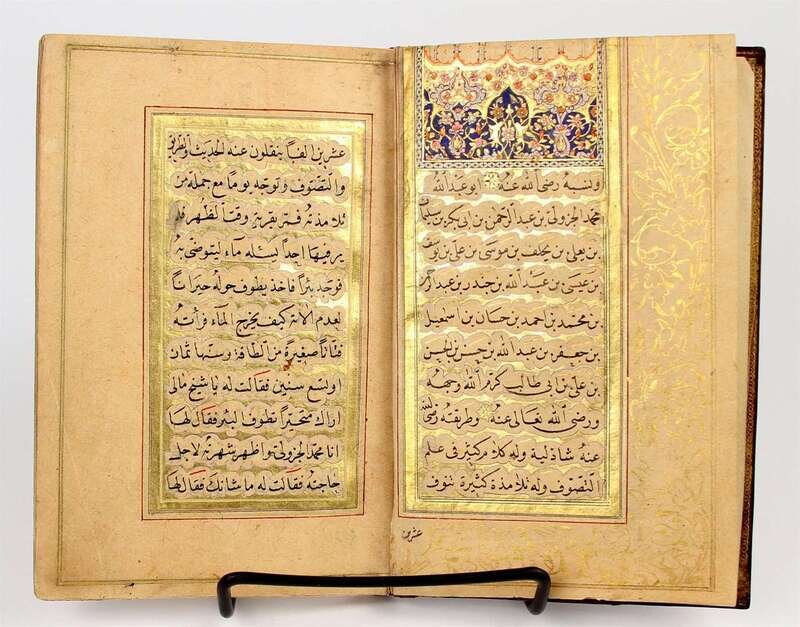 ونسبه رضى الله عنه ابو عبد الله
محمد الجزولى بن عبد الرحمن بن ابى بكر بن سليمان
بن يعلى بن يخلف بن موسى بن على بن يوسف
بن عيسى بن عبد الله بن جندر بن عبد الرحمن
بن محمد بن احمد بن حسان بن اسمعيل
بن جعفر بن عبد الله بن حسن بن الحسن
بن على بن ابى طالب كرم الله وجهه
ورضى الله تعالى عنه وطريقته رضى الله
عنه شاذلية وله كلام كثير فى علم
التصوف وله تلامذة كثيرة تنوف
عشرين
عشرين الفاً ينقلون عنه الحديث والطريق
والتصوف وتوجه يوماً مع جملة من
تلامذته فمر بقرية وقت الظهر فلم
ير فيها احداً يسئله ماء ليتوضى به
فوجد بئراً فاخذ يطوف حوله حيراناً
لعدم الالة كيف يخرج الماء فرأته
فتاتاً صغيرة من الطاقة وسنها ثمان
او تسع سنين فقالت له يا شيخ مالى
اراك متحيراً تطوف البئر فقال لها
انا محمد الجزولى واظهر شهرته لاجل
حاجته فقالت له ما شانك فقال لها